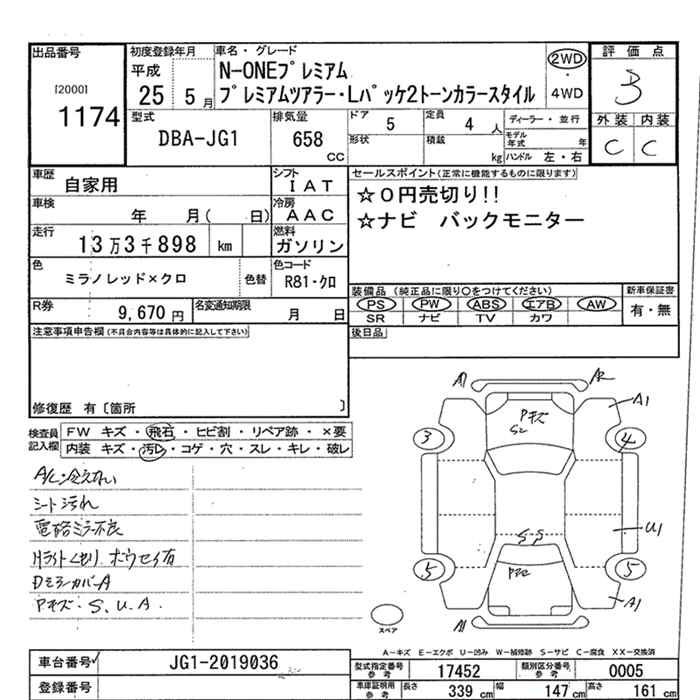 出品番号
[2000]
1174
初度登録年月
平成
25 5月
車名・グレード
N-ONEプレミアム
プレミアムツアラー・Lパッケ2トーンカラースタイル
2WD
・
4WD
評価点
3
外装 内装
C C
型式
DBA-JG1
排気量
658
CC
ドア 5
定員 4 人
形状
積載 kg
ディーラー・並行
モデル年式 年
ハンドル 左・右
車歴 自家用
シフト
IAT
車検 年 月( 日)
冷房
AAC
走行 13万3千898 km
燃料
ガソリン
色 ミラノレッド×クロ
色替
色コード
R81-クロ
R券 9,670円
名変通知期限 月 日
セールスポイント(正常に機能するものに限ります)
☆0円売切り!!
☆ナビ バックモニター
装備品 (純正品に限り○をつけてください)
PS PW ABS エアB AW
SR ナビ TV カワ
新車保証書
有・無
後日品
注意事項申告欄(不具合内容等は具体的に記入して下さい)
修復歴 有〔箇所 〕
検査員記入欄
FW キズ・飛石・ヒビ割・リペア跡・×要
内装 キズ・汚レ・コゲ・穴・スレ・キレ・破レ
A/C冷えない
シート汚れ
電格ミラー不良
Hライトくもり ホウセイ有
DミラーカバーA
Pキズ・S.U.A.
A1 A2
Pキズ
S2
A1
3 4
U1
S S
5 5
A1
A1
スペア
A-キズ E-エクボ U-凹み W-補修跡 S-サビ C-腐食 XX-交換済
車台番号 JG1-2019036
登録番号
型式指定番号 参考 17452
類別区分番号 参考 0005
車庫証明用 参考 長さ 339 cm 幅 147 cm 高さ 161 cm